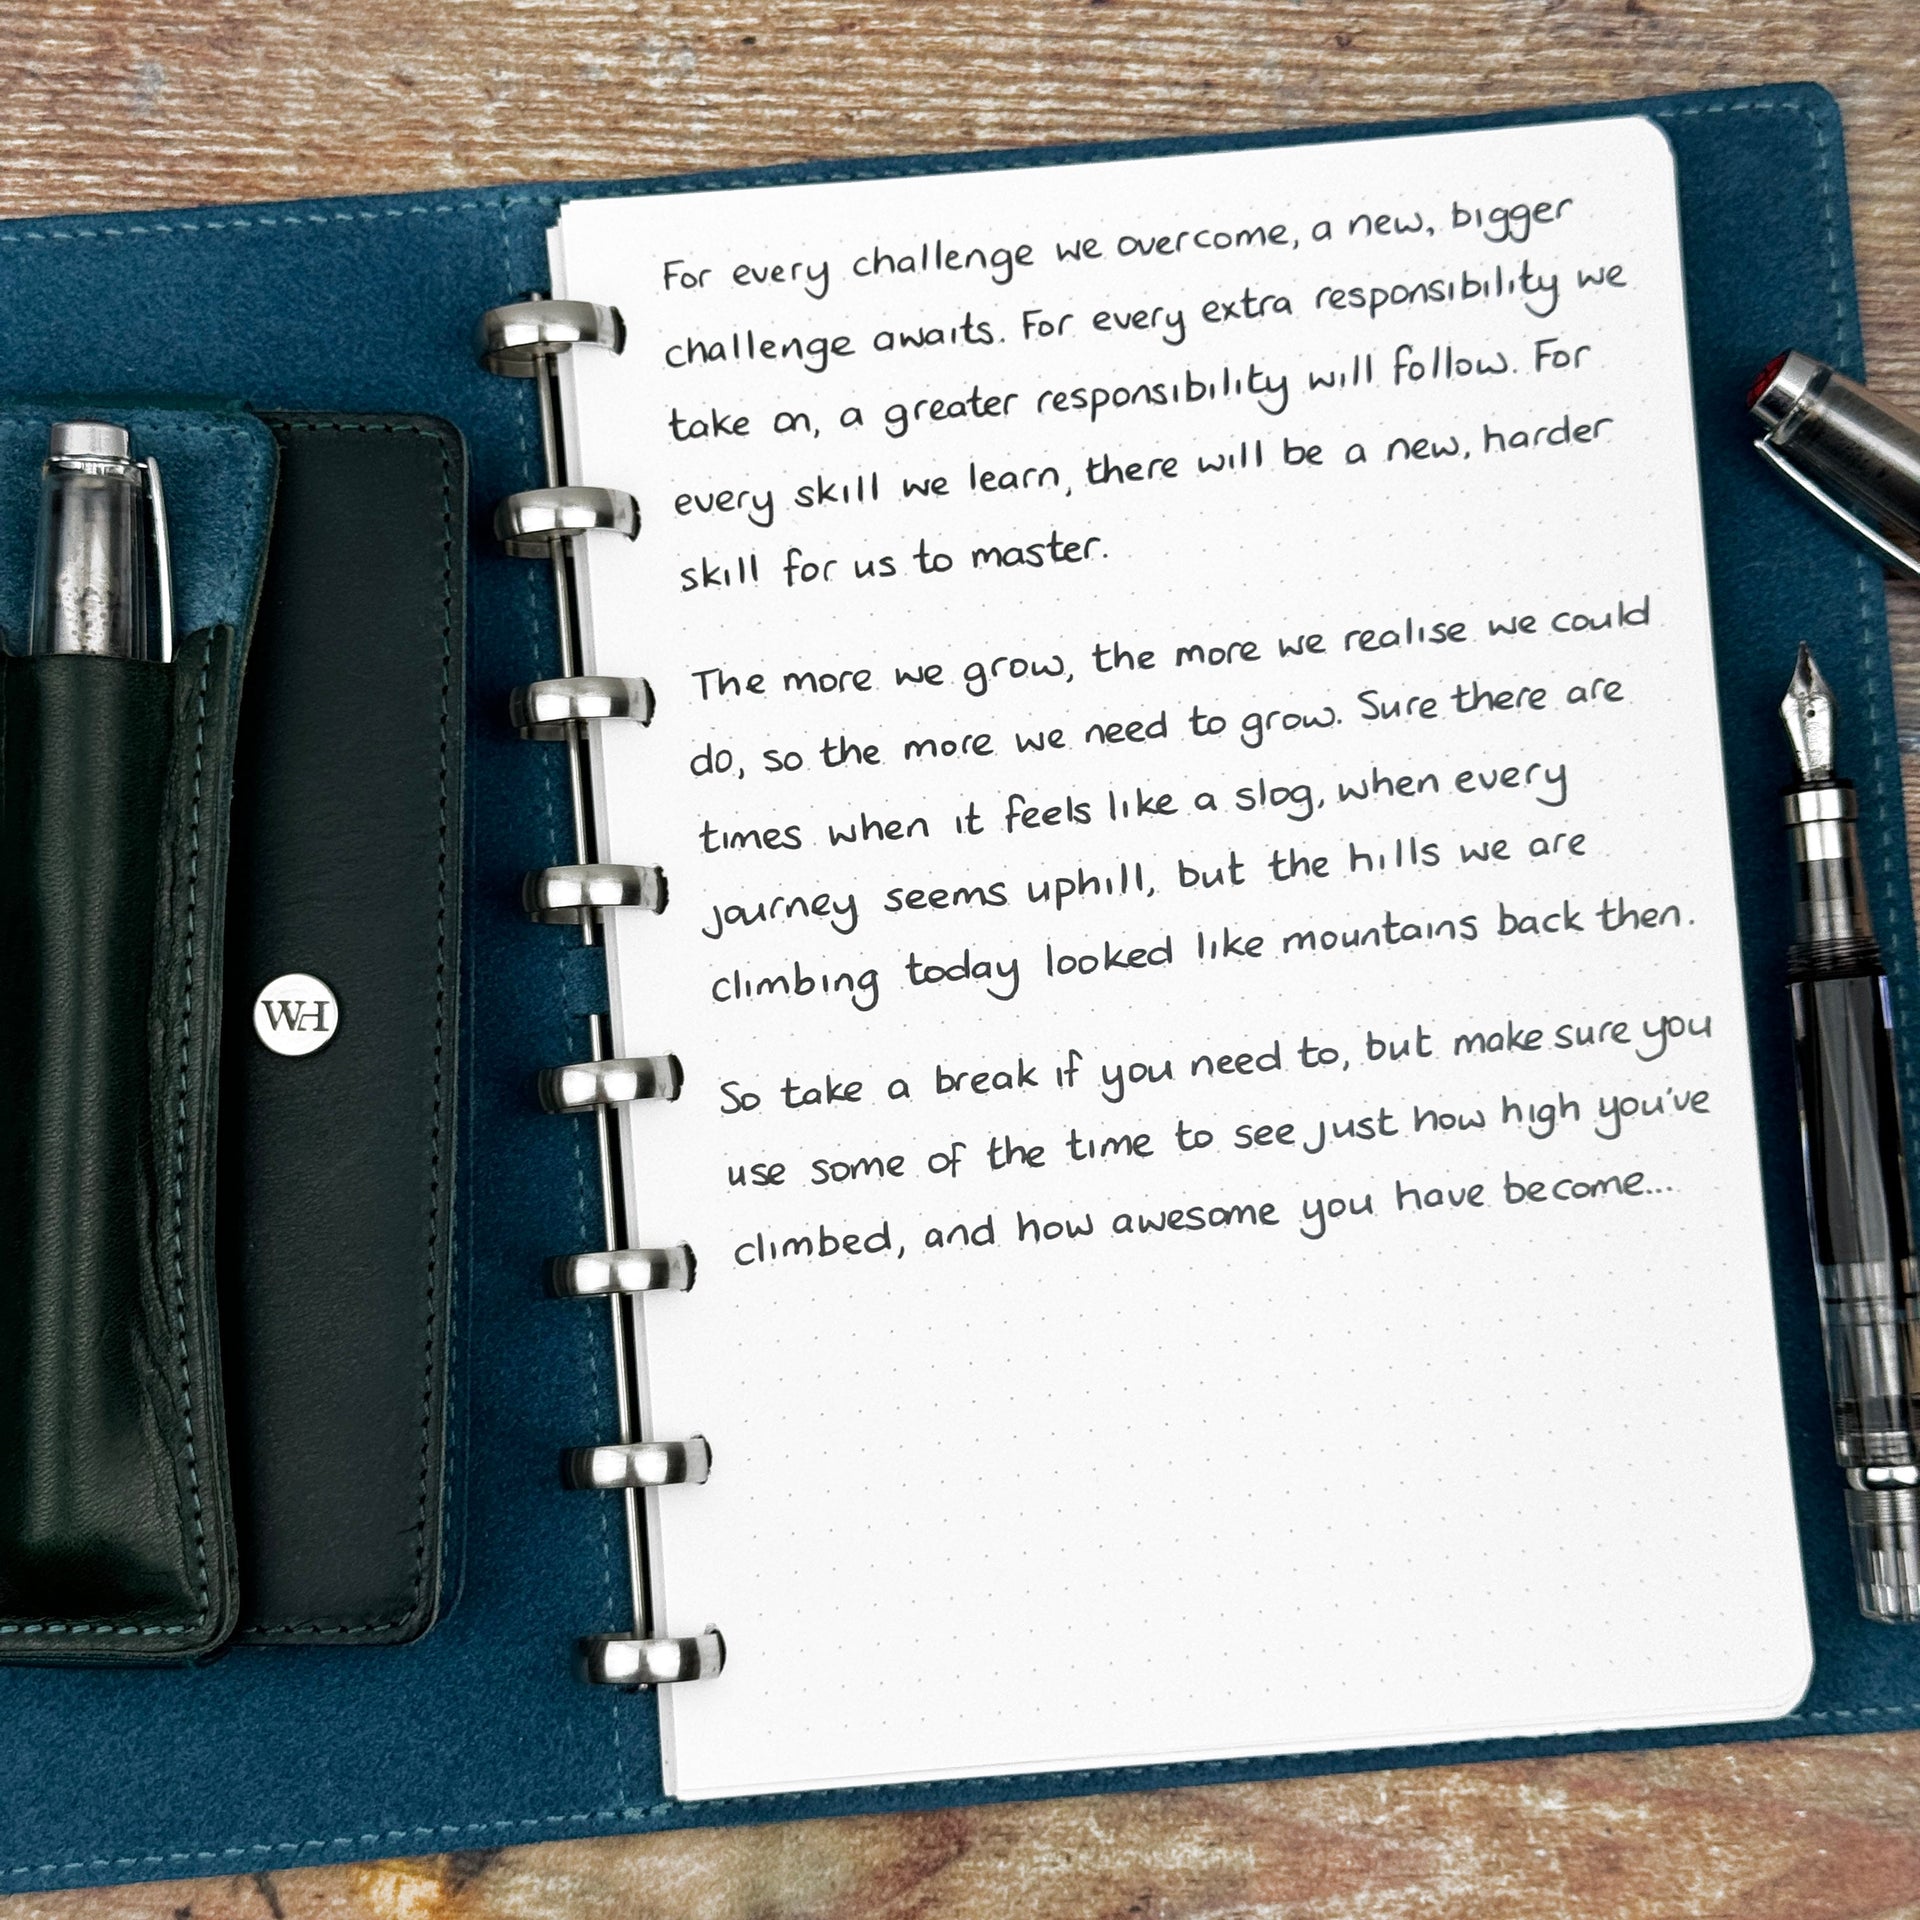 For every challenge we overcome, a new, bigger
challenge awaits. For every extra responsibility we
take on, a greater responsibility will follow. For
every skill we learn, there will be a new, harder
skill for us to master.
The more we grow, the more we realise we could
do, so the more we need to grow. Sure there are
times when it feels like a slog, when every
journey seems uphill, but the hills we are
climbing today looked like mountains back then.
So take a break if you need to, but make sure you
use some of the time to see just how high you've
climbed, and how awesome you have become...
WH